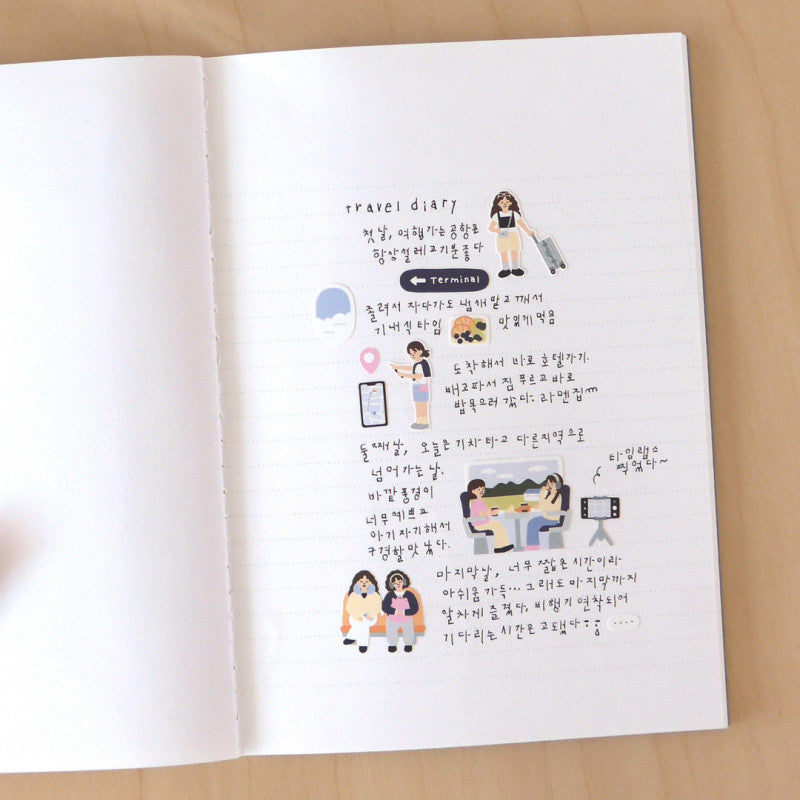 travel diary
첫날, 여행가는 공항은
항상 설레고 기분 좋다
← Terminal
졸려서 자다가도 냄새 맡고 깨서
기내식 타임 맛있게 먹음
도착해서 바로 호텔가기.
배고파서 짐 푸르고 바로
밥 먹으러 갔다. 라멘집
둘째날, 오늘은 기차 타고 다른지역으로
넘어가는 날.
바깥 풍경이
너무 예쁘고
아기자기해서
구경할 맛 났다.
타임랩스
찍었다~
마지막날, 너무 짧은 시간이라
아쉬움 가득... 그래도 마지막까지
알차게 즐겼다. 비행기 연착되어
기다리는 시간은 고됐다 ....